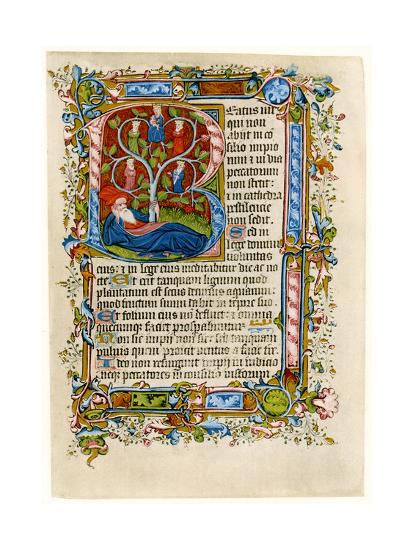 Beatus vir
qui non
abiit in co
silio impio
rum et in via
peccatorum
non stetit:
et in cathedra
pestilencie
non sedit.
Sed in
lege domini
voluntas
eius: et in lege eius meditabitur die ac no
cte. Et erit tanquam lignum quod
plantatum est secus decursus aquarum:
quod fructum suum dabit in tempore suo.
Et folium eius non defluet: et omnia
quecunque faciet prosperabuntur.
Non sic impii non sic: sed tanquam
pulvis quem proicit ventus a facie terre.
Ideo non resurgunt impii in iudicio
neque peccatores in consilio iustorum.